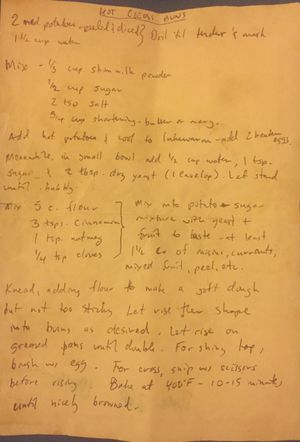 HOT CROSS BUNS
2 med potatoes - peeled & diced } Boil 'til tender & mash
1 1/2 cup water
Mix - 1/3 cup skim milk powder
1/2 cup sugar
2 tsp salt
cup shortening - butter or marg.
Add hot potatoes & cool to lukewarm - add 2 beaten eggs.
Meanwhile, in small bowl add 1/2 cup water, 1 tsp.
sugar & 2 tbsp. dry yeast (1 envelope). Let stand
until bubbly.
Mix 5 c. flour
3 tsps. cinnamon
1 tsp. nutmeg
1/4 tsp cloves
} Mix into potato & sugar
mixture with yeast +
fruit to taste - at least
1 1/2 c of raisins, currants,
mixed fruit, peel, etc.
Knead, adding flour to make a soft dough
but not too sticky. Let rise then shape
into buns as desired. Let rise on
greased pans until double. For shiny top,
brush w. egg. For cross, snip w. scissors
before rising. Bake at 400°F - 10-15 minutes
until nicely browned.